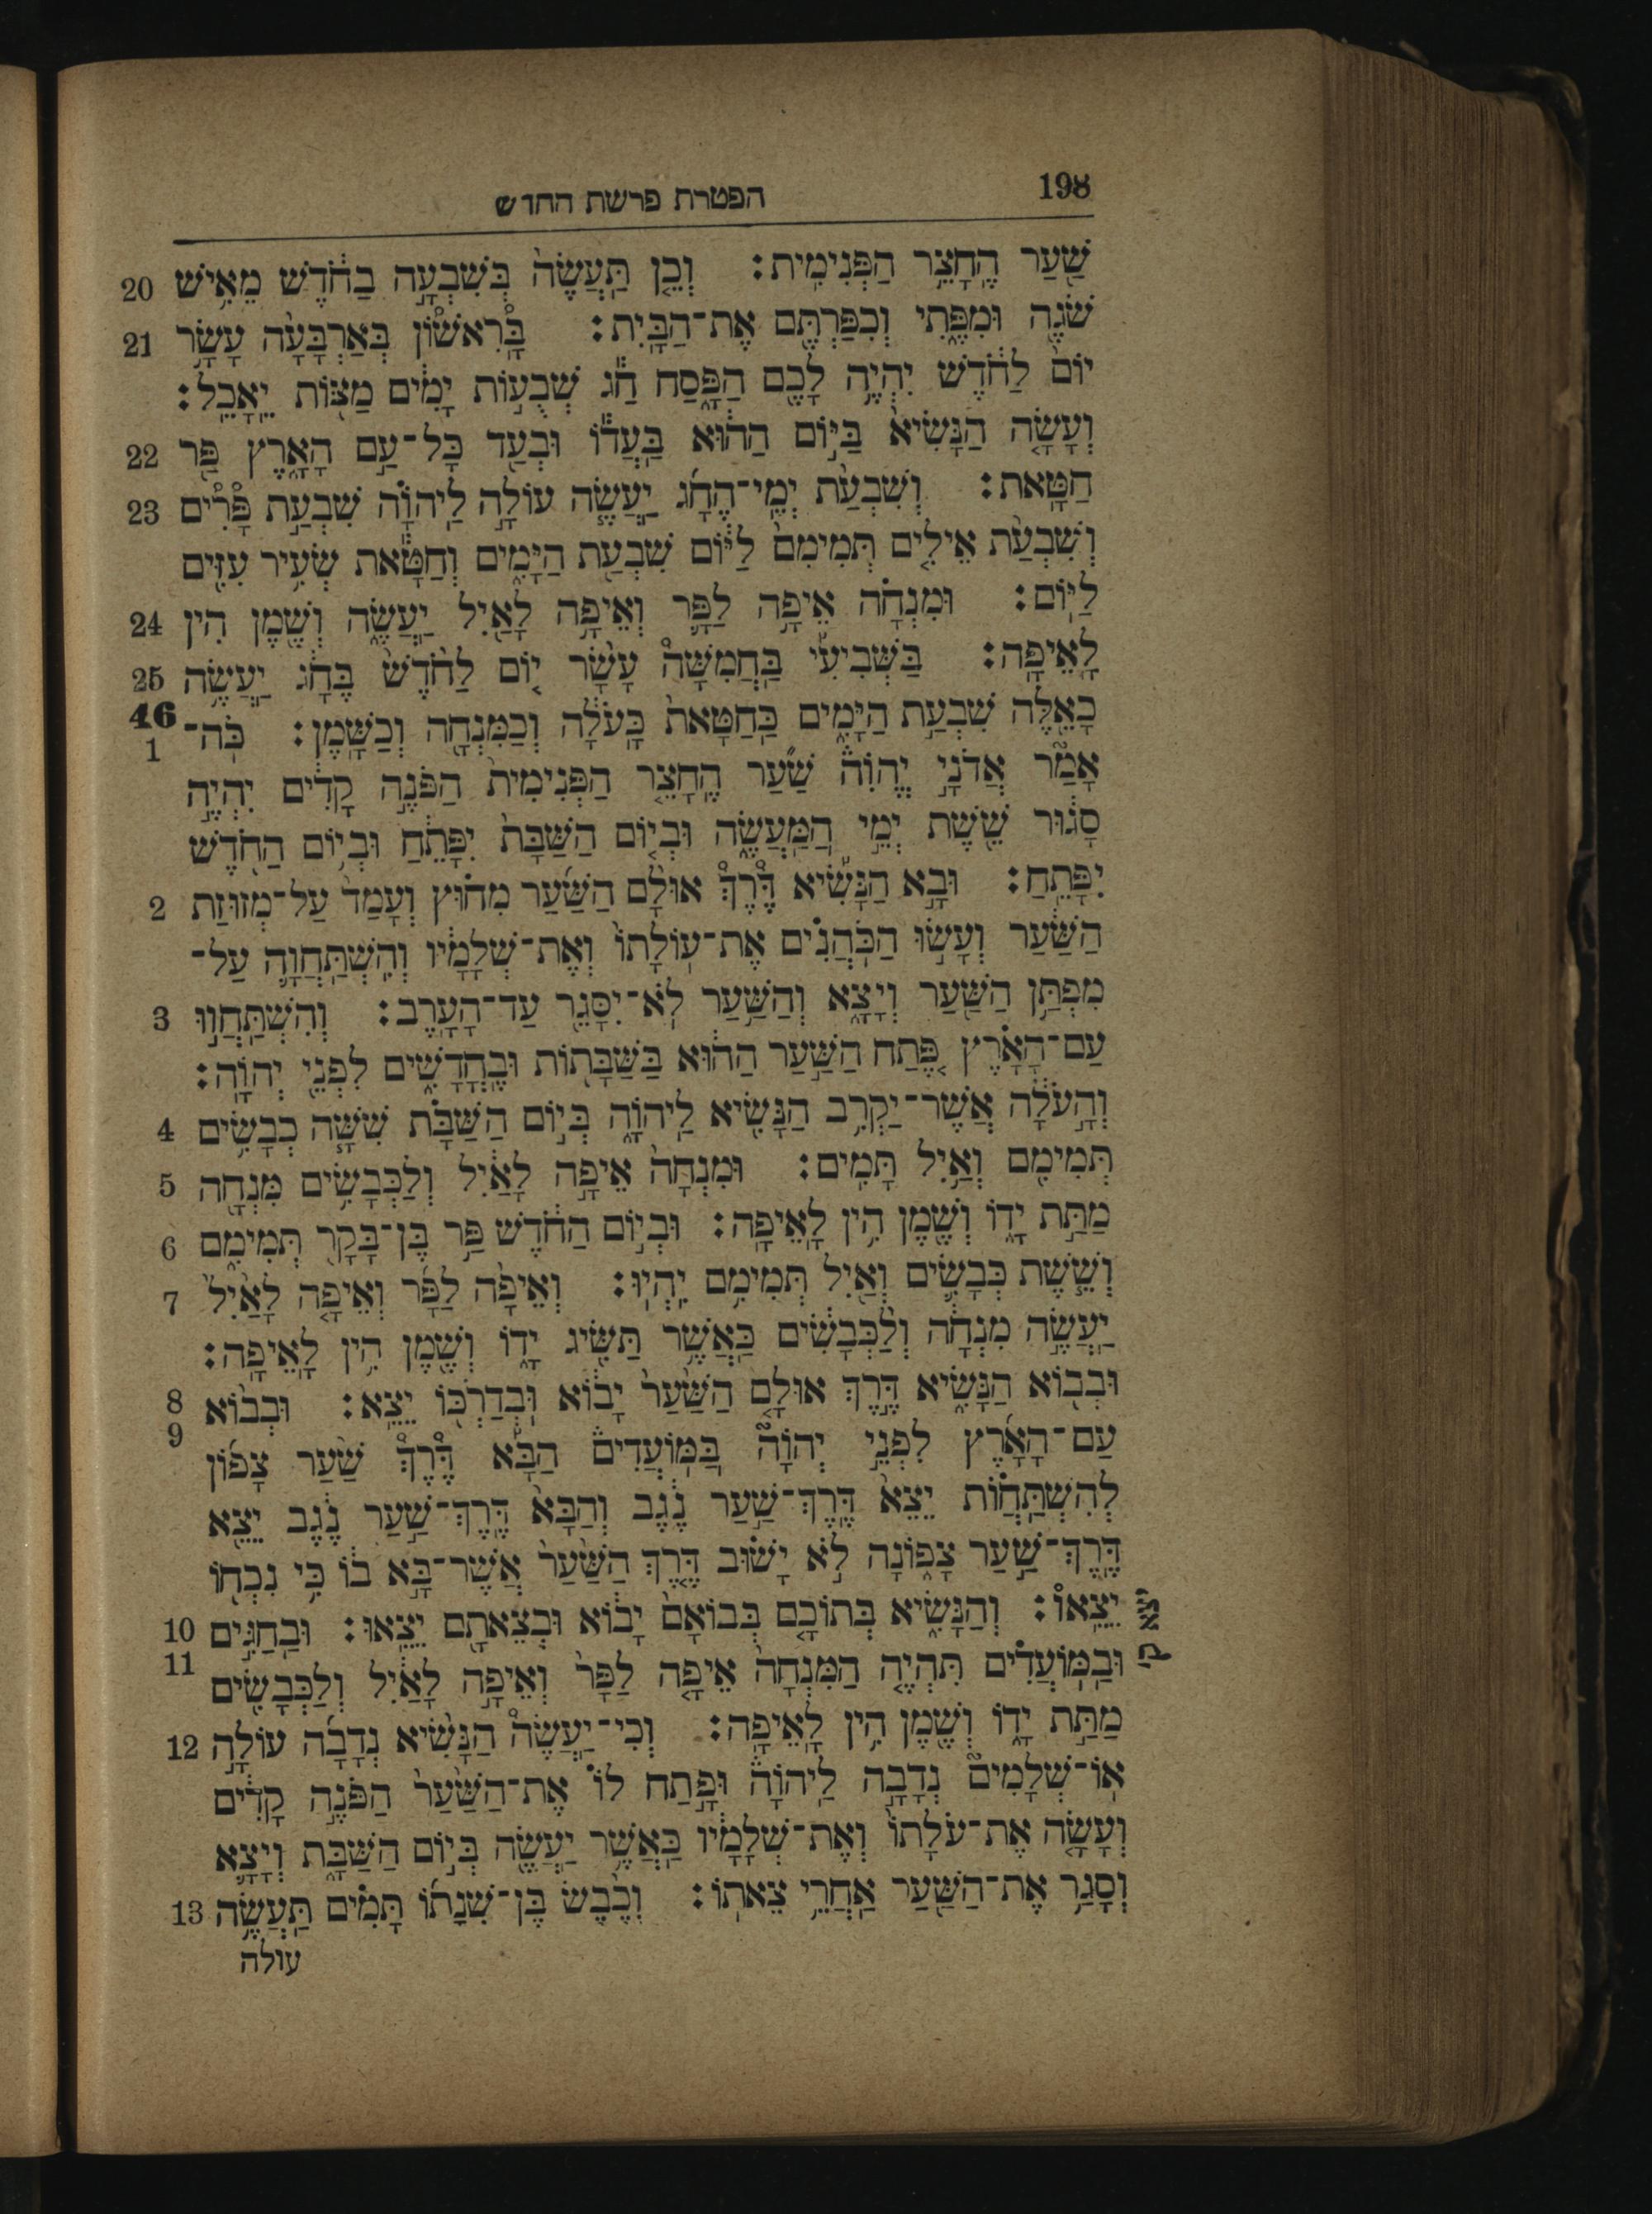 198
הפטרת פרשת החדש
שַׁ֖עַר הֶחָצֵ֥ר הַפְּנִימִֽית׃ וְכֵ֤ן תַּֽעֲשֶׂה֙ בְּשִׁבְעָ֣ה בַחֹ֔דֶשׁ מֵאִ֥ישׁ 20
שֹׁגֶ֖ה וּמִפֶּ֑תִי וְכִפַּרְתֶּ֖ם אֶת־הַבָּֽיִת׃ בָּ֠רִאשׁוֹן בְּאַרְבָּעָ֨ה עָשָׂ֥ר 21
יוֹם֙ לַחֹ֔דֶשׁ יִהְיֶ֥ה לָכֶ֖ם הַפָּ֑סַח חָ֕ג שְׁבֻע֣וֹת יָמִ֔ים מַצּ֖וֹת יֵֽאָכֵֽל׃
וְעָשָׂ֤ה הַנָּשִׂיא֙ בַּיּ֣וֹם הַה֔וּא בַּֽעֲד֕וֹ וּבְעַ֖ד כָּל־עַ֣ם הָאָ֑רֶץ פַּ֖ר 22
חַטָּֽאת׃ וְשִׁבְעַ֨ת יְמֵֽי־הֶחָ֜ג יַֽעֲשֶׂ֧ה עוֹלָ֣ה לַֽיהוָֹ֗ה שִׁבְעַ֣ת פָּ֠רִים 23
וְשִׁבְעַ֨ת אֵילִ֤ים תְּמִימִם֙ לַיּ֔וֹם שִׁבְעַ֖ת הַיָּמִ֑ים וְחַטָּ֕את שְׂעִ֥יר עִזִּ֖ים
לַיּֽוֹם׃ וּמִנְחָ֗ה אֵיפָ֥ה לַפָּ֛ר וְאֵיפָ֥ה לָאַ֖יִל יַֽעֲשֶׂ֑ה וְשֶׁ֖מֶן הִ֥ין 24
לָֽאֵיפָֽה׃ בַּשְּׁבִיעִ֡י בַּֽחֲמִשָּׁה֩ עָשָׂ֨ר י֤וֹם לַחֹ֙דֶשׁ֙ בֶּחָ֔ג יַֽעֲשֶׂ֥ה 25
כָאֵ֖לֶּה שִׁבְעַ֣ת הַיָּמִ֑ים כַּֽחַטָּאת֙ כָּֽעֹלָ֔ה וְכַמִּנְחָ֖ה וְכַשָּֽׁמֶן׃ כֹּֽה־ 46 1
אָמַר֮ אֲדֹנָ֣י יֱהוִֹה֒ שַׁ֜עַר הֶֽחָצֵ֤ר הַפְּנִימִית֙ הַפֹּנֶ֣ה קָדִ֔ים יִֽהְיֶ֣ה
סָג֔וּר שֵׁ֖שֶׁת יְמֵ֣י הַֽמַּֽעֲשֶׂ֑ה וּבְי֤וֹם הַשַּׁבָּת֙ יִפָּתֵ֔חַ וּבְי֥וֹם הַחֹ֖דֶשׁ
יִפָּתֵֽחַ׃ וּבָ֣א הַנָּשִׂ֡יא דֶּרֶךְ֩ אוּלָ֨ם הַשַּׁ֜עַר מִח֗וּץ וְעָמַד֙ עַל־מְזוּזַ֣ת 2
הַשַּׁ֔עַר וְעָשׂ֣וּ הַכֹּֽהֲנִ֗ים אֶת־עֽוֹלָתוֹ֙ וְאֶת־שְׁלָמָ֔יו וְהִֽשְׁתַּֽחֲוָ֛ה עַל־
מִפְתַּ֥ן הַשַּׁ֖עַר וְיָצָ֑א וְהַשַּׁ֥עַר לֹֽא־יִסָּגֵ֖ר עַד־הָעָֽרֶב׃ וְהִשְׁתַּֽחֲו֣וּ 3
עַם־הָאָ֗רֶץ פֶּ֚תַח הַשַּׁ֣עַר הַה֔וּא בַּשַּׁבָּת֖וֹת וּבֶֽחֳדָשִׁ֑ים לִפְנֵ֖י יְהוָֹֽה׃
וְהָ֣עֹלָ֔ה אֲשֶׁר־יַקְרִ֥ב הַנָּשִׂ֖יא לַֽיהוָֹ֑ה בְּי֣וֹם הַשַּׁבָּ֗ת שִׁשָּׁ֧ה כְבָשִׂ֛ים 4
תְּמִימִ֖ם וְאַ֥יִל תָּמִֽים׃ וּמִנְחָה֙ אֵיפָ֣ה לָאַ֔יִל וְלַכְּבָשִׂ֥ים מִנְחָ֖ה 5
מַתַּ֣ת יָד֑וֹ וְשֶׁ֖מֶן הִ֥ין לָֽאֵיפָֽה׃ וּבְי֣וֹם הַחֹ֔דֶשׁ פַּ֥ר בֶּן־בָּקָ֖ר תְּמִימִ֑ם 6
וְשֵׁ֧שֶׁת כְּבָשִׂ֛ים וְאַ֖יִל תְּמִימִ֥ם יִֽהְיֽוּ׃ וְאֵיפָ֨ה לַפָּ֜ר וְאֵיפָ֤ה לָאַ֙יִל֙ 7
יַֽעֲשֶׂ֣ה מִנְחָ֔ה וְלַ֨כְּבָשִׂ֔ים כַּֽאֲשֶׁ֥ר תַּשִּׂ֖יג יָד֑וֹ וְשֶׁ֖מֶן הִ֥ין לָֽאֵיפָֽה׃
וּבְב֖וֹא הַנָּשִׂ֑יא דֶּ֣רֶךְ אוּלָ֤ם הַשַּׁ֙עַר֙ יָב֔וֹא וּבְדַרְכּ֖וֹ יֵצֵֽא׃ וּבְב֨וֹא 8 9
עַם־הָאָ֜רֶץ לִפְנֵ֣י יְהוָֹה֮ בַּמּֽוֹעֲדִים֒ הַבָּ֡א דֶּרֶךְ֩ שַׁ֨עַר צָפ֜וֹן
לְהִשְׁתַּֽחֲוֹ֗ת יֵצֵא֙ דֶּֽרֶךְ־שַׁ֣עַר נֶ֔גֶב וְהַבָּא֙ דֶּֽרֶךְ־שַׁ֣עַר נֶ֔גֶב יֵצֵ֖א
דֶּֽרֶךְ־שַׁ֣עַר צָפ֑וֹנָה לֹ֣א יָשׁ֗וּב דֶּ֤רֶךְ הַשַּׁ֙עַר֙ אֲשֶׁר־בָּ֣א ב֔וֹ כִּ֥י נִכְח֖וֹ
יֵצֵֽאוֹ׃ וְהַנָּשִׂ֑יא בְּתוֹכָ֤ם בְּבוֹאָם֙ יָב֔וֹא וּבְצֵאתָ֖ם יֵצֵֽאוּ׃ וּבַֽחַגִּ֣ים 10 יצא ק
וּבַמּֽוֹעֲדִ֗ים תִּֽהְיֶ֤ה הַמִּנְחָה֙ אֵיפָ֤ה לַפָּר֙ וְאֵיפָ֣ה לָאַ֔יִל וְלַכְּבָשִׂ֖ים 11
מַתַּ֣ת יָד֑וֹ וְשֶׁ֖מֶן הִ֥ין לָֽאֵיפָֽה׃ וְכִֽי־יַֽעֲשֶׂה֩ הַנָּשִׂ֨יא נְדָבָ֜ה עוֹלָ֣ה 12
אֽוֹ־שְׁלָמִים֮ נְדָבָ֣ה לַֽיהוָֹה֒ וּפָ֣תַח ל֗וֹ אֶת־הַשַּׁ֙עַר֙ הַפֹּנֶ֣ה קָדִ֔ים
וְעָשָׂ֤ה אֶת־עֹֽלָתוֹ֙ וְאֶת־שְׁלָמָ֔יו כַּֽאֲשֶׁ֥ר יַֽעֲשֶׂ֖ה בְּי֣וֹם הַשַּׁבָּ֑ת וְיָצָ֛א
וְסָגַ֥ר אֶת־הַשַּׁ֖עַר אַֽחֲרֵ֥י צֵאתֽוֹ׃ וְכֶ֨בֶשׂ בֶּן־שְׁנָת֜וֹ תָּמִ֗ים תַּֽעֲשֶׂ֥ה 13
עולה